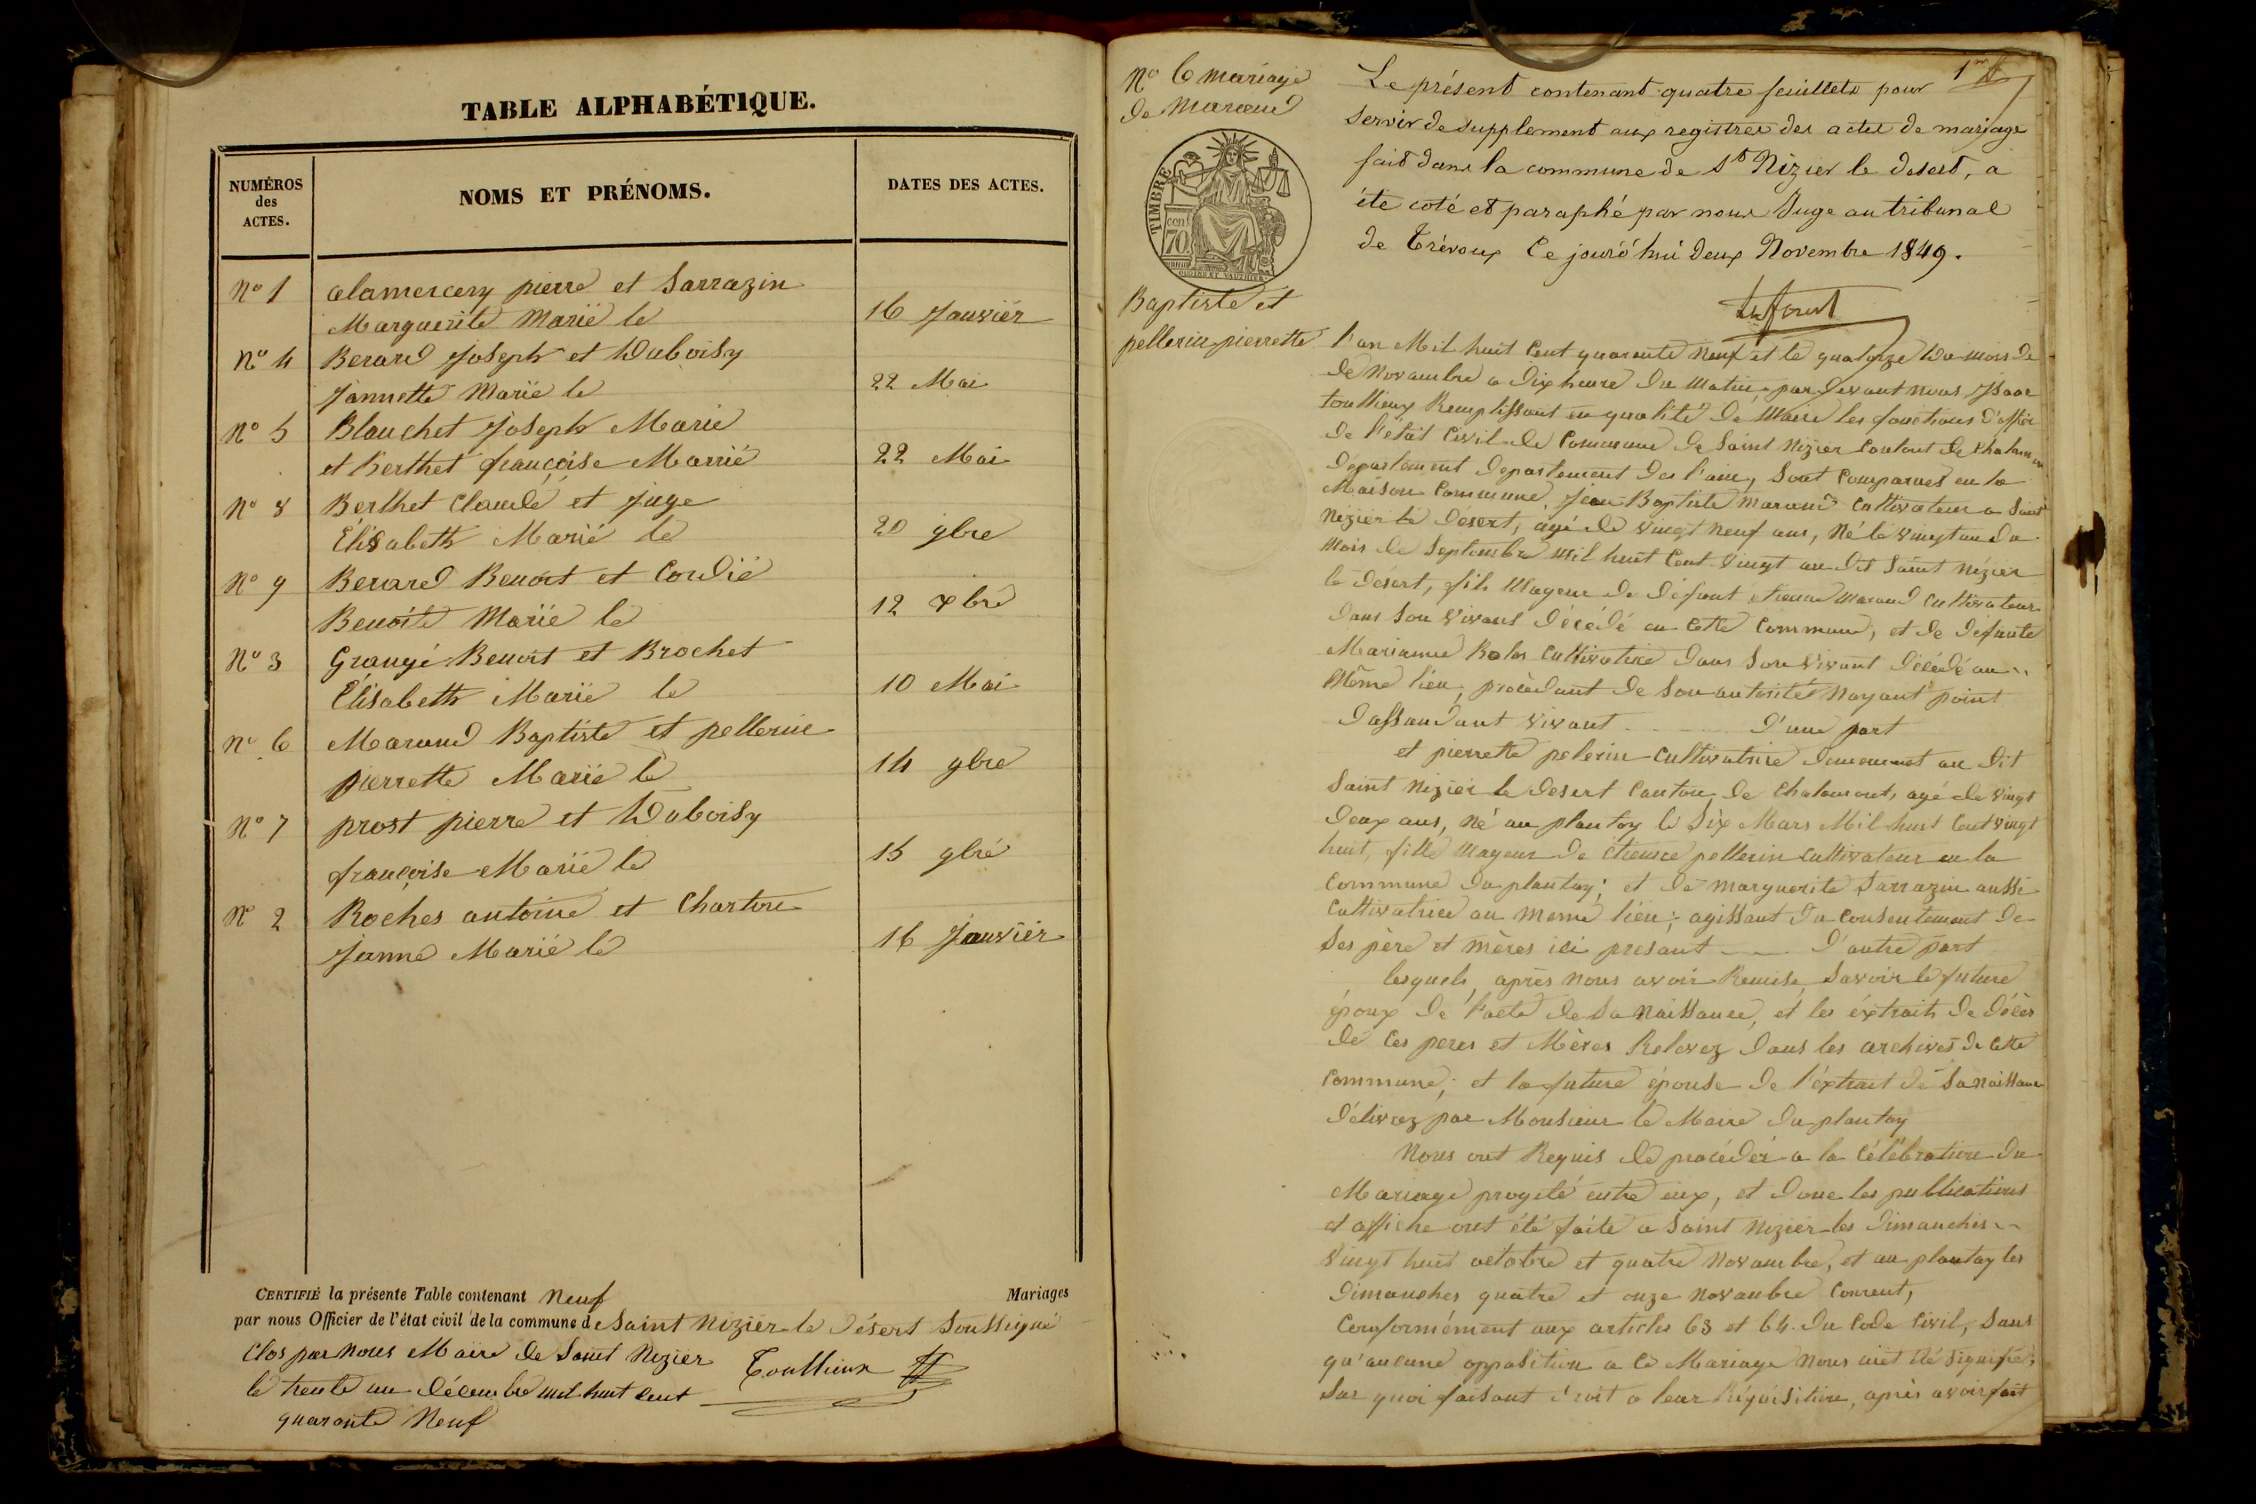 TABLE ALPHABÉTIQUE.
NUMÉROS
des
ACTES.
NOMS ET PRÉNOMS.
DATES DES ACTES.
No 1 alamercery pierre et Sarrazin
Marguerite Marië le 16 Janvier
No 4 Berard Joseph et Duboisy
Jannette Marië le 22 Mai
No 5 Blanchet Joseph Marie
et Berthet françoise Marrié 22 Mai
No 8 Berthet Claude et Juge
Élisabeth Marië le 20 9bre
No 9 Berard Benoit et Cordië
Benoîte Marië le 12 xbre
No 3 Grangé Benoit et Brochet
Élisabeth Marië le 10 Mai
No 6 Maraud Baptiste et pellerin
pierrette Marië le 14 9bre
No 7 prost pierre et Duboisy
françoise Marië le 15 9bre
No 2 Roches antoine et Chartre
Janne Marié le 16 Janvier
CERTIFIÉ la présente Table contenant Neuf Mariages
par nous Officier de l'état civil de la commune de Saint Nizier le désert Soussigné
Clos par nous Maire de Saint Nizier
le trente un décembre mil huit cent
quarante Neuf
Toullieux
No 6 mariage
de Maraud
TIMBRE
70
Baptiste et
pellerin pierrette
1er
Le présent contenant quatre feuillets pour
servir de supplement aux registres des actes de mariage
fait dans la commune de St Nizier le desert, a
été coté et paraphé par nous Juge au tribunal
de Trévoux Ce jourd'hui deux Novembre 1849.
l'an Mil huit Cent quarante Neuf et le quatorze Du mois de
de Novambre a dix heure du Matin, par devant nous Isaac
toullieux Remplissant en qualité de Maire les fonctions d'offier
de l'etat Civil de Commune de Saint Nizier Canton de Chalamon
département departement de l'ain, Sont Comparues en la
Maison Commune, Jean Baptiste maraud Cultivateur a Saint
Nizier le Désert, agé de vingt neuf ans, Né le vingt un du
Mois de Septembre mil huit Cent vingt au dit Saint Nizier
le désert, fils Mageur de défunt etienne maraud Cultivateur
dans Son vivant décédé en Cette Commune, et de défunte
Marianne Cultivatrice dans Son vivant décédé au
Même lieu, procédant de Son autorité Nayant point
dassandant vivant D'une part
et pierrette pelerin Cultivatrice demeurant au dit
Saint Nizier le desert Canton de Chalamont, agé de vingt
deux ans, Né au plantay le Six Mars Mil huit Cent vingt
huit, fille Mageur de étienne pellerin Cultivateur en la
Commune du plantay; et de marguerite Sarrazin aussi
Cultivatrice au meme lieu; agissant du Consentement de
Ses père et mères ici presant D'autre part
lesquels, après Nous avoir Remise, Savoir le future
époux de l'acte de Sa Naissance, et les éxtraits de décès
de Ces peres et Mères Relevez dans les archives de Cette
Commune; et la future épouse de l'éxtrait de Sa naissance
délivrez par Monsieur le Maire du plantay
Nous ont Requis de procéder a la Célébration du
Mariage progeté entre eux, et donc les publications
et affiche ont été faite a Saint Nizier les dimanches
vingt huit octobre et quatre Novambre, et au plantay les
Dimanches quatre et onze Novambre Courent,
Conformément aux articles 63 et 64 du Code Civil, Sans
qu'aucune opposition a Ce Mariage Nous ait été Signifié,
Sur quoi faisant droit a leur Réquisition, après avoir fait